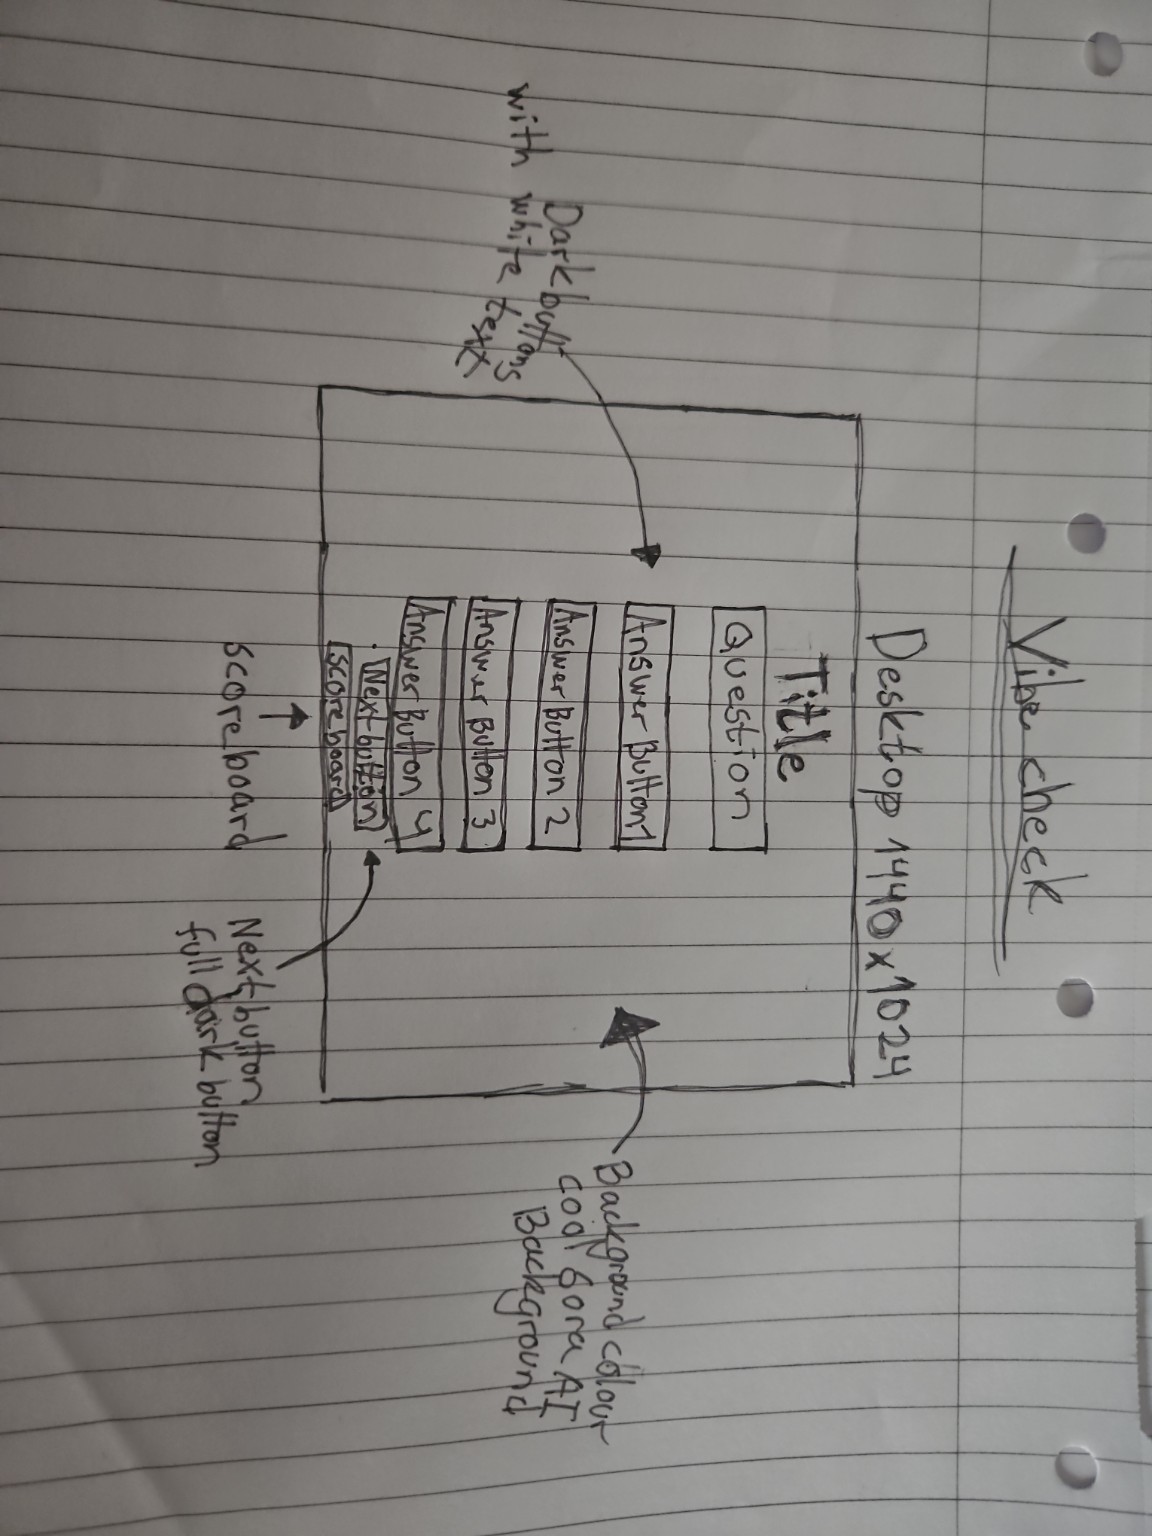 Vibe check
Desktop 1440 x 1024
Title
Question
Answer Button 1
Answer Button 2
Answer Button 3
Answer Button 4
Next button
Score board
Dark buttons
with white text
Background colour
cool Sora AI
Background
Score board
Next button
full dark button